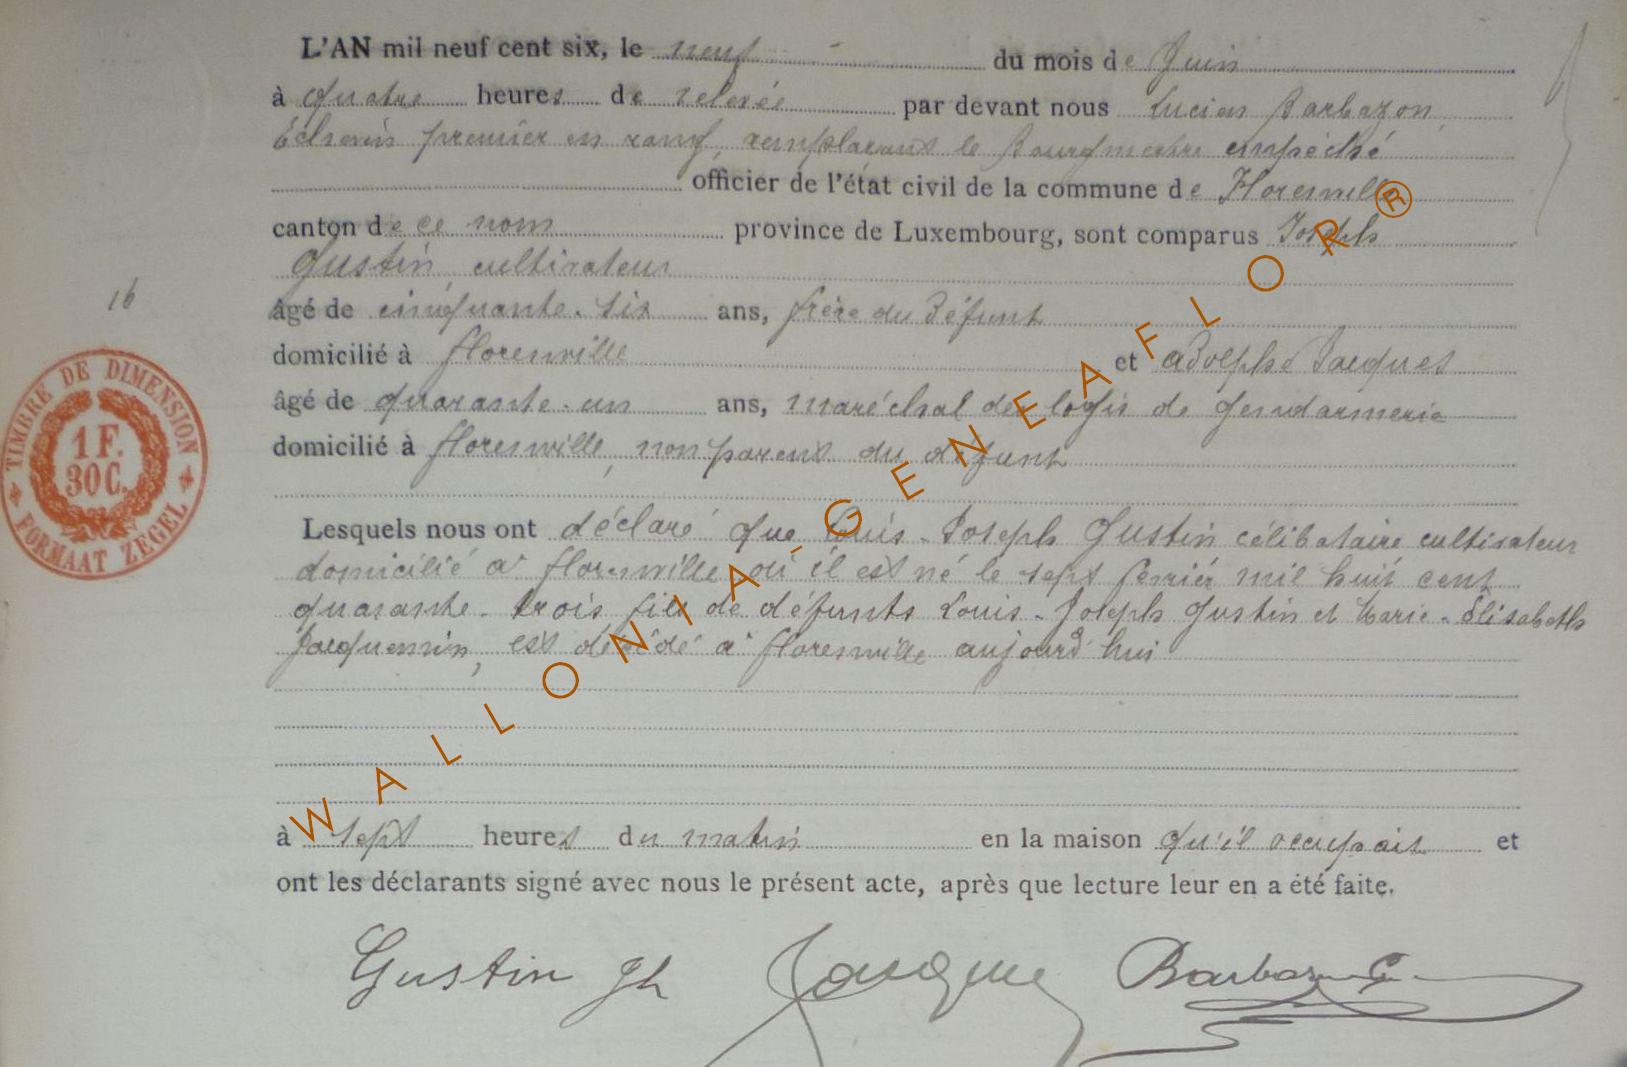 L'AN mil neuf cent six, le neuf - du mois de Juin
à quatre heures de relevée par devant nous Lucien Barbazon,
Échevin premier en rang, remplaçant le Bourgmestre empêché
officier de l'état civil de la commune de Florenville
canton de ce nom province de Luxembourg, sont comparus Joseph
Gustin, cultivateur
16
âgé de cinquante-six ans, frère du défunt
domicilié à Florenville et Adolphe Jacques
âgé de quarante-un ans, maréchal des logis de gendarmerie
domicilié à Florenville, non parent du défunt
TIMBRE DE DIMENSION
1 F.
30 C.
FORMAAT ZEGEL
Lesquels nous ont déclaré que Louis-Joseph Gustin célibataire, cultivateur
domicilié à Florenville où il est né le sept février mil huit cent
quarante-trois fils de défunts Louis-Joseph Gustin et Marie-Élisabeth
Jacquemin, est décédé à Florenville aujourd'hui
à sept heures du matin en la maison qu'il occupait et
ont les déclarants signé avec nous le présent acte, après que lecture leur en a été faite.
Gustin Jh Jacques Barbazon
WALLONIA-GENEAFLOR®